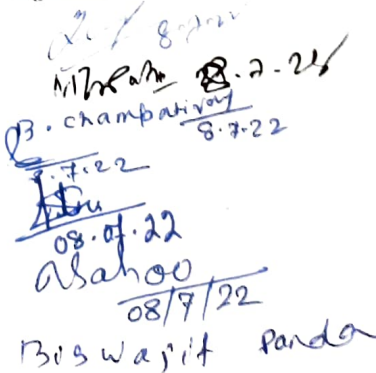 8-7-22
8.7.22
B. Champatiray
8.7.22
8.7.22
08.07.22
asahoo
08/7/22
Biswajit Panda